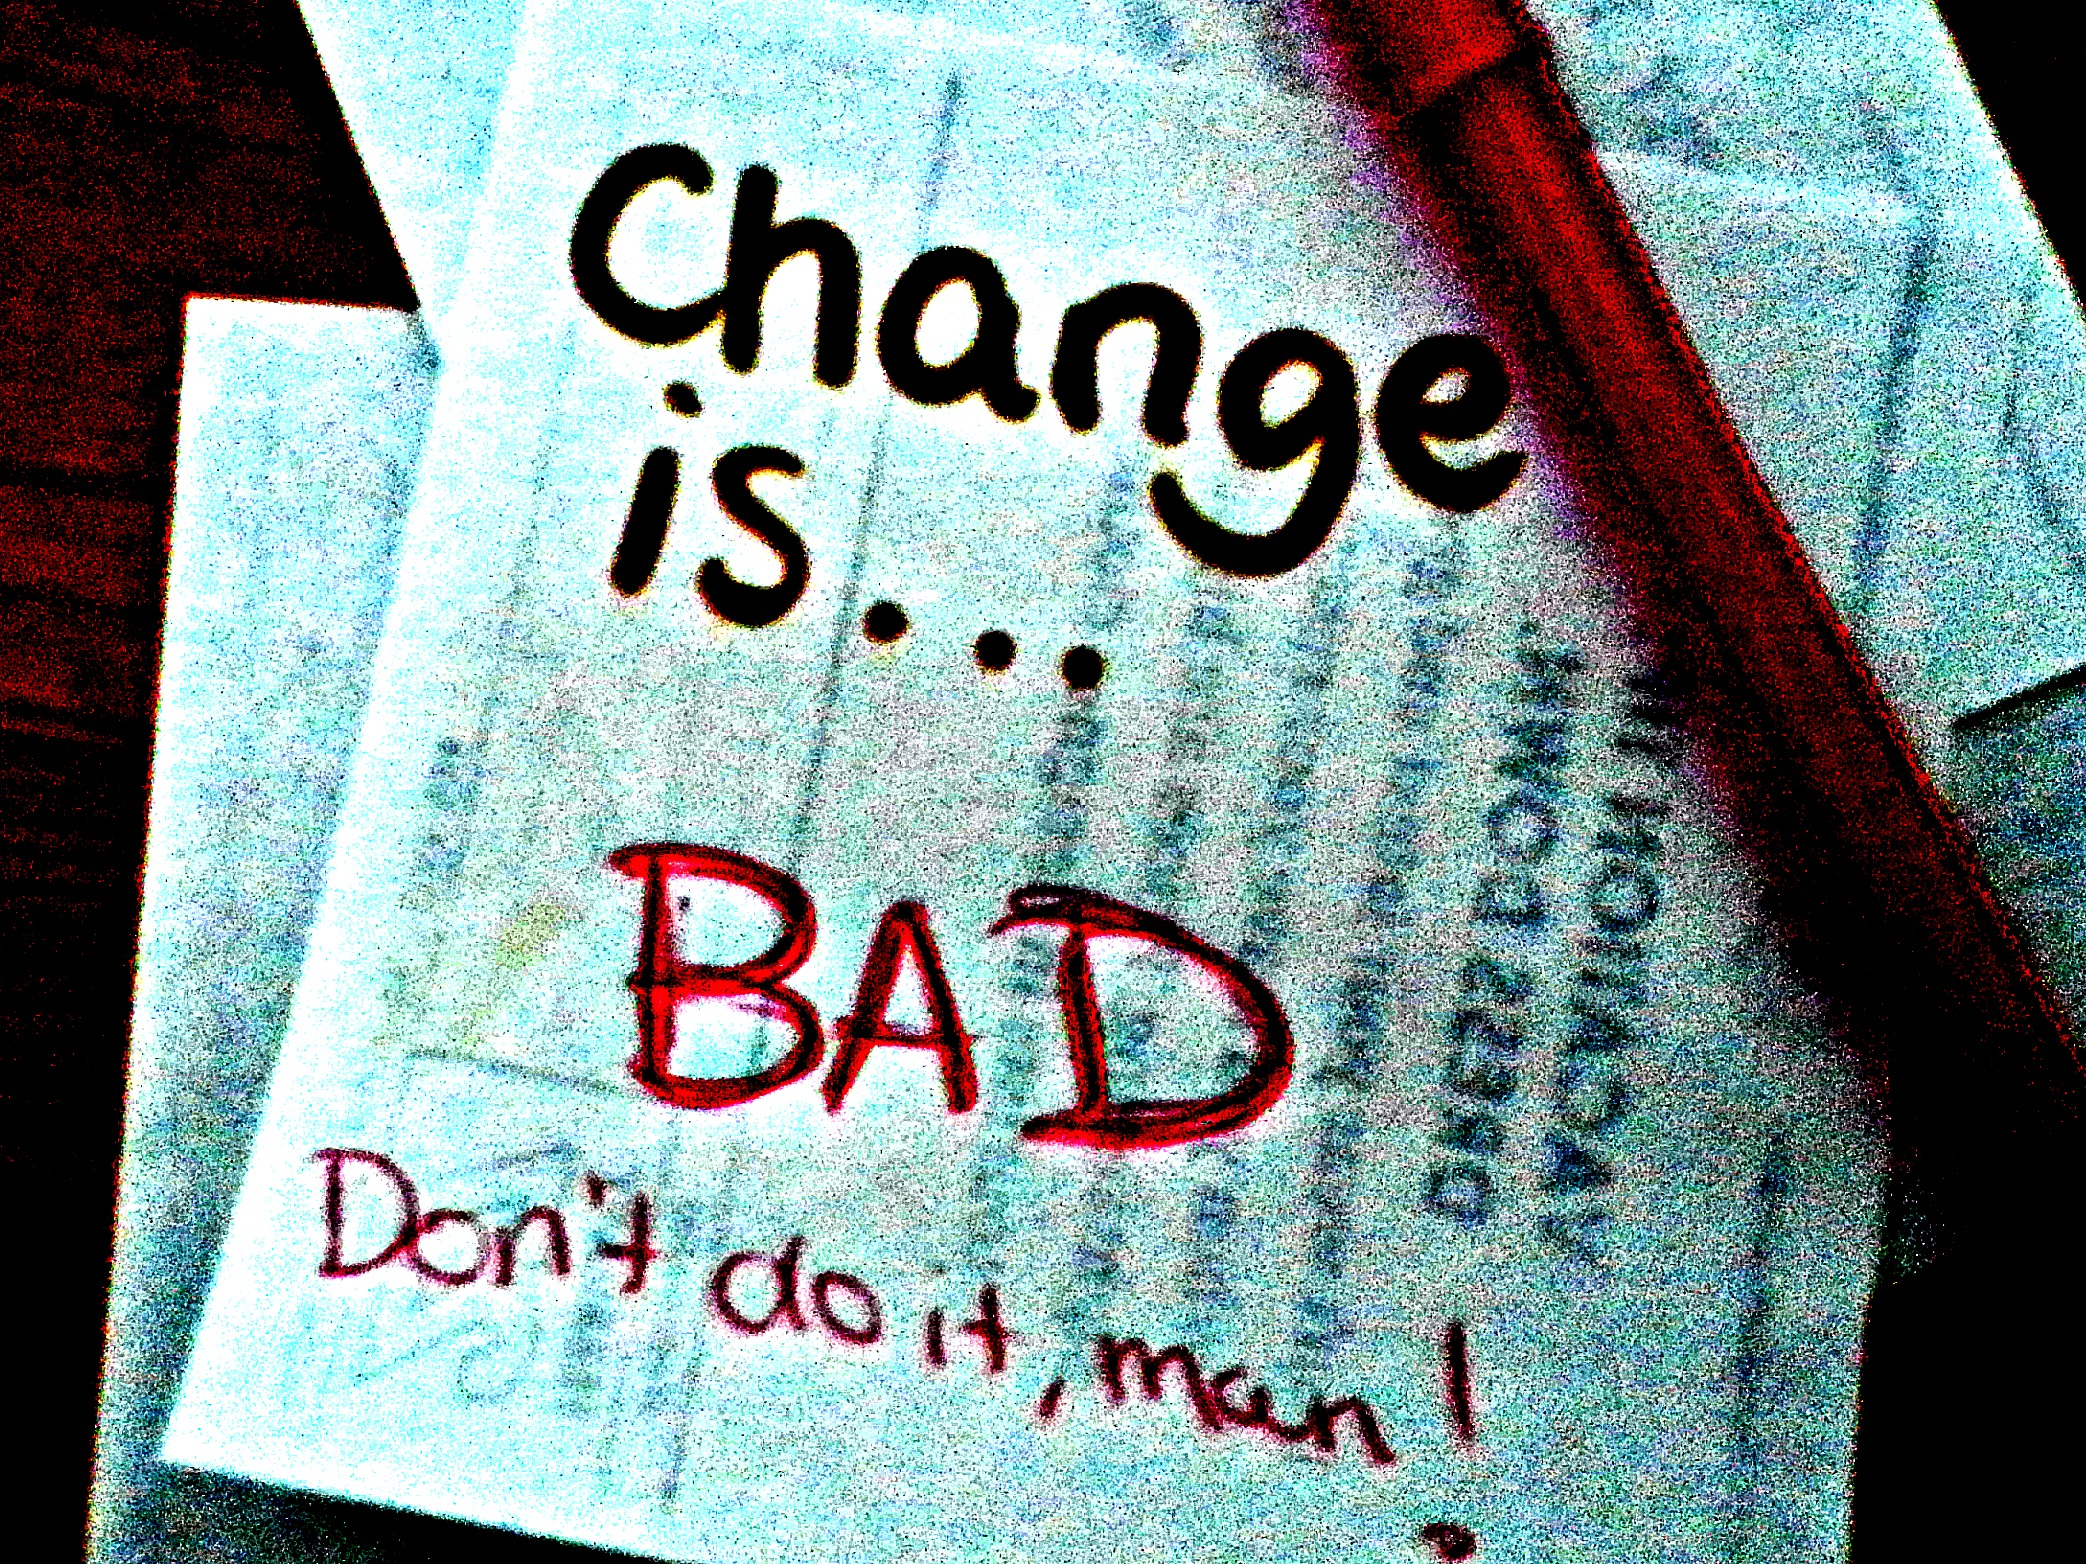 Change
is...
BAD
Don't do it, man!